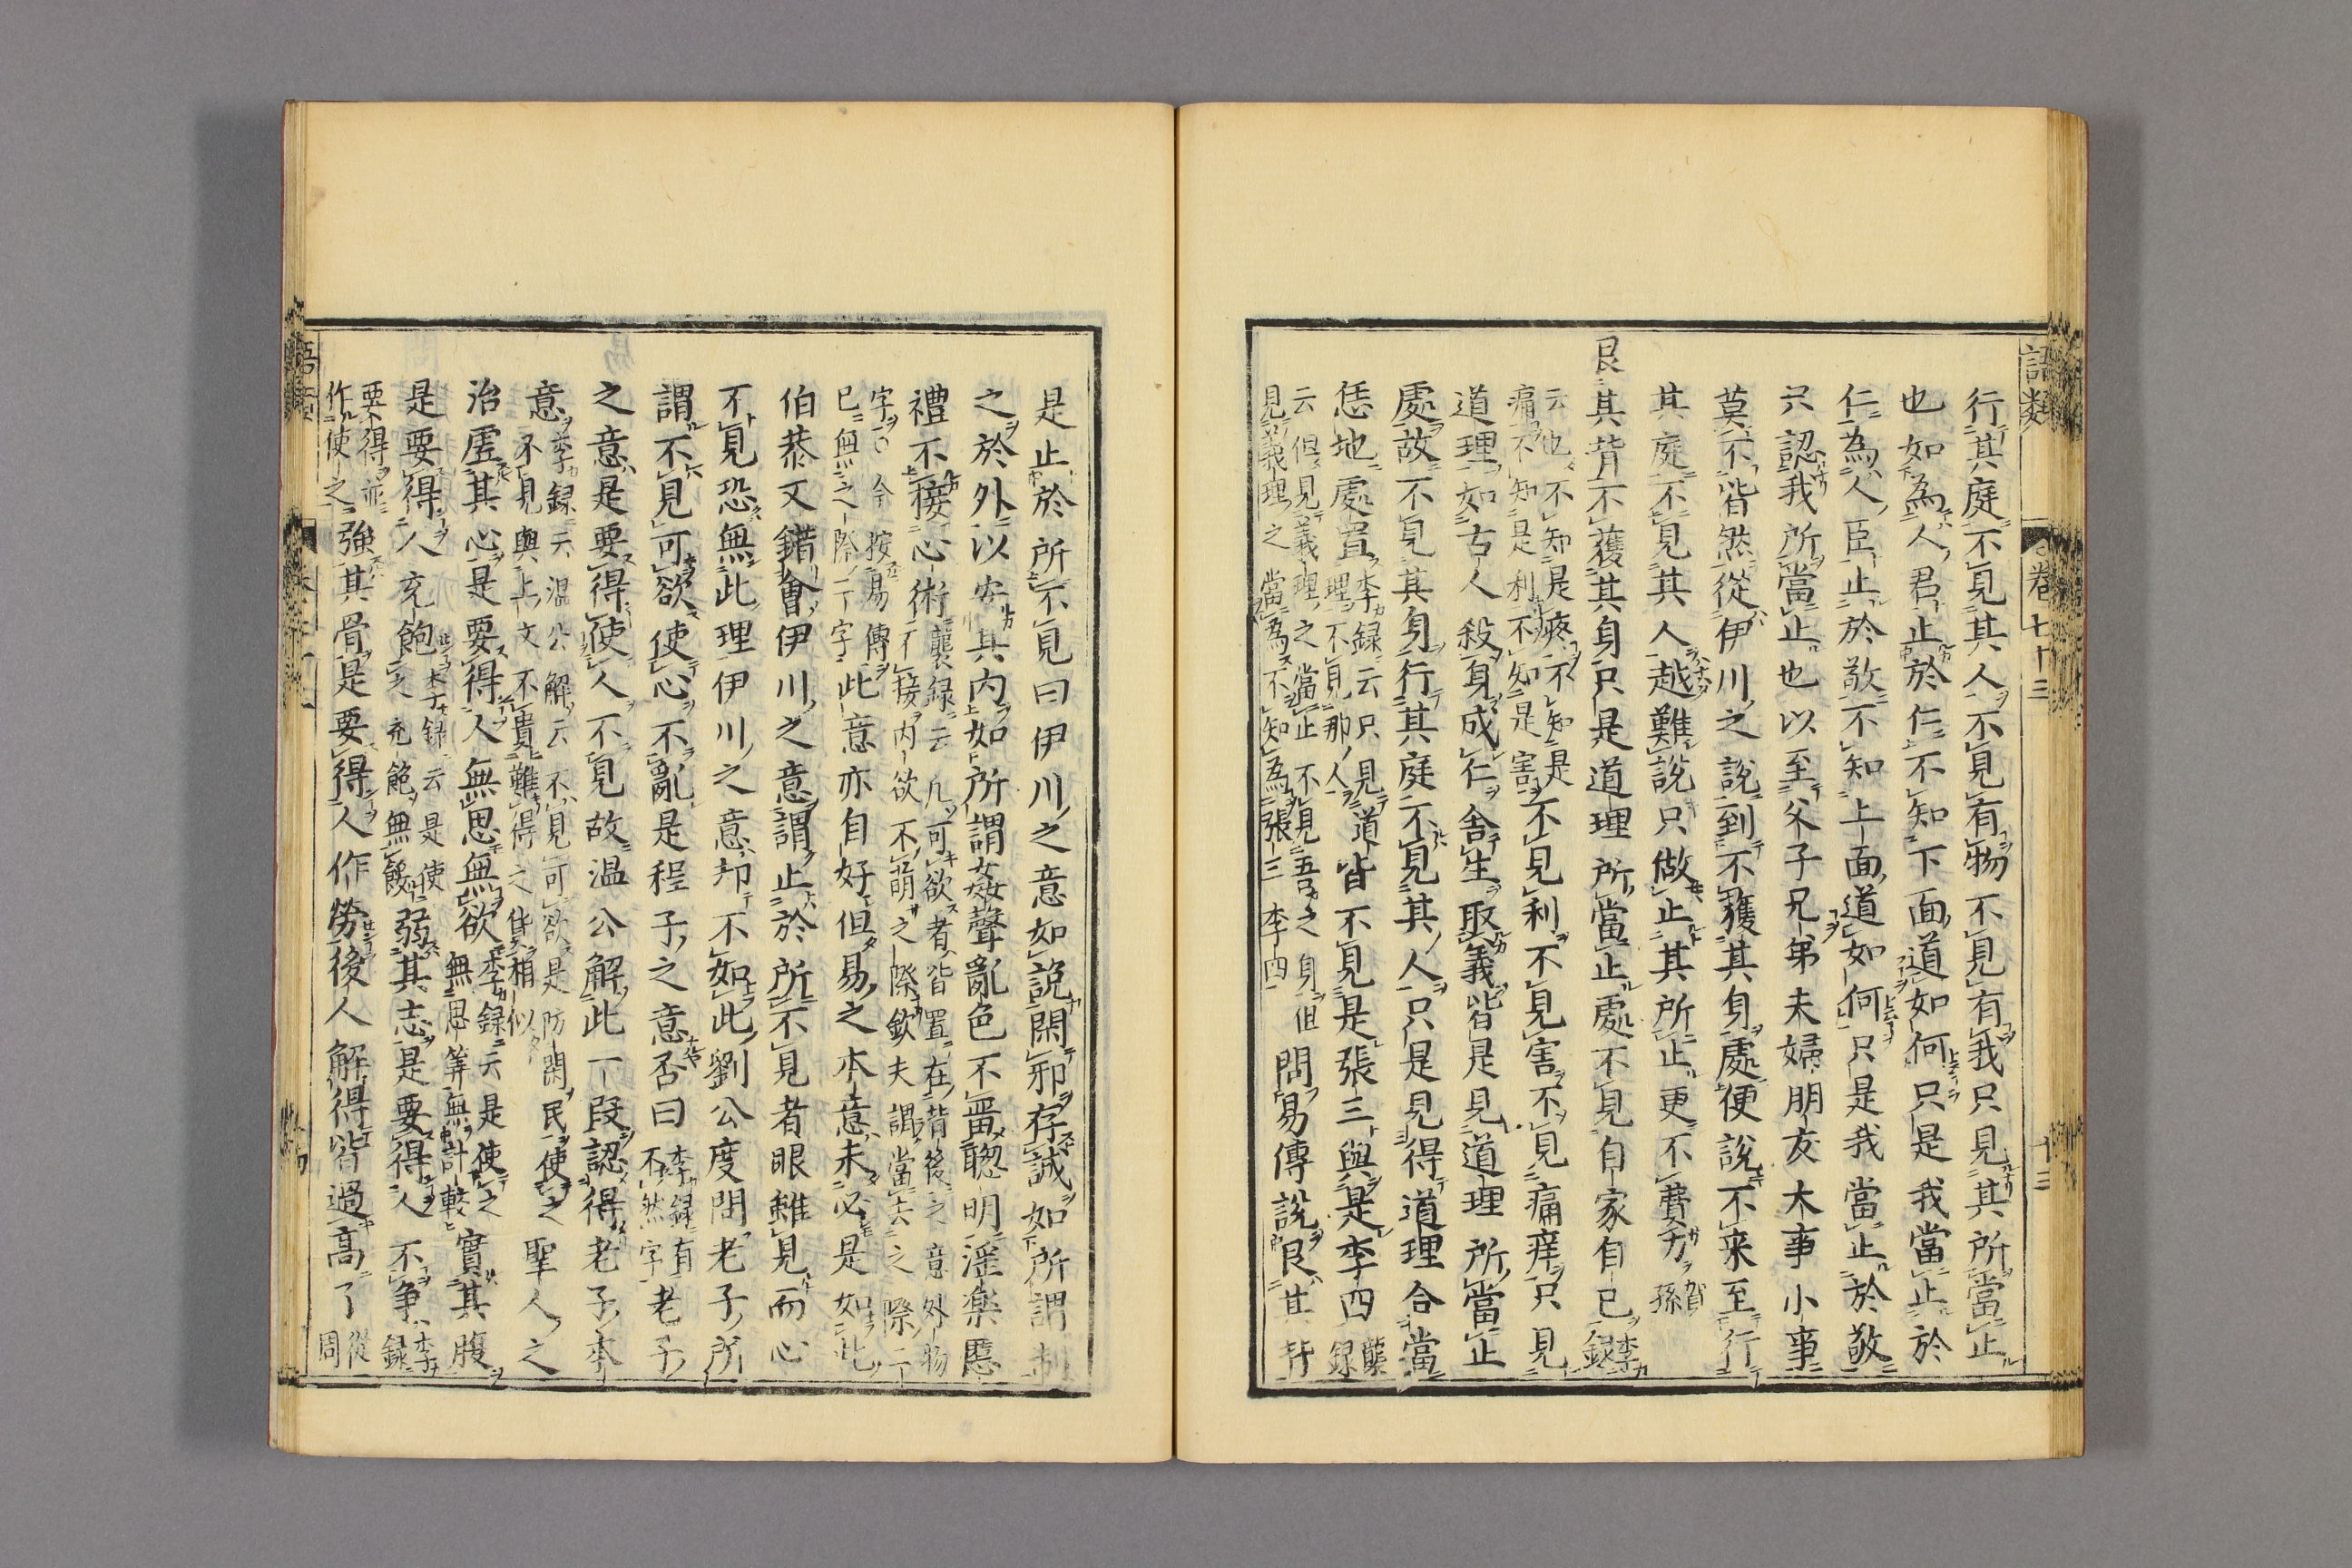 語類 卷七十三 十三
行其庭不見其人不見有物不見有我只見其所當止
也如為人君止於仁不知下面道如何只是我當止於
仁為人臣止於敬不知上面道如何只是我當止於敬
只認我所當止也以至父子兄弟夫婦朋友大事小事
莫不皆然從伊川之說到不獲其身處便說不来至行
其庭不見其人越難說只做止其所止更不費力賀孫
艮其背不獲其身只是道理所當止處不見自家自己李録
云也不知是疼不知是痛不知是利不知是害不見利不見害不見痛痒只見
道理如古人殺身成仁舎生取義皆是見道理所當止
處故不見其身行其庭不見其人只是見得道理合當
恁地處置李録云只見道理不見那人皆不見是張三與是李四龔録
云但見義理之當止不見吾之身但見義理之當為不知為張三李四問易傳說艮其背
是止於所不見曰伊川之意如說閑邪存誠如所謂制
之於外以安其内如所謂姦聲亂色不畱聰明滛樂慝
禮不接心術龔録云凡可欲者皆置在背後之意外物不接内欲不萌之際欽夫謂當去之際二
字○今按易傳已無之際二字此意亦自好但易之本意未必是如此
伯恭又錯會伊川之意謂止於所不見者眼雖見而心
不見恐無此理伊川之意却不如此劉公度問老子所
謂不見可欲使心不亂是程子之意否曰李録有不然字老子
之意是要得使人不見故温公解此一段認得老子本
意李録云温公解云不見可欲是防閑民使之不見與上文不貴難得之貨相似聖人之
治虛其心是要得人無思無欲李録云是使之無思筭無計較實其腹
是要得人充飽李録云是使之充飽無餒弱其志是要得人不争李録
要得並作使之強其骨是要得人作勞後人解得皆過高了從周